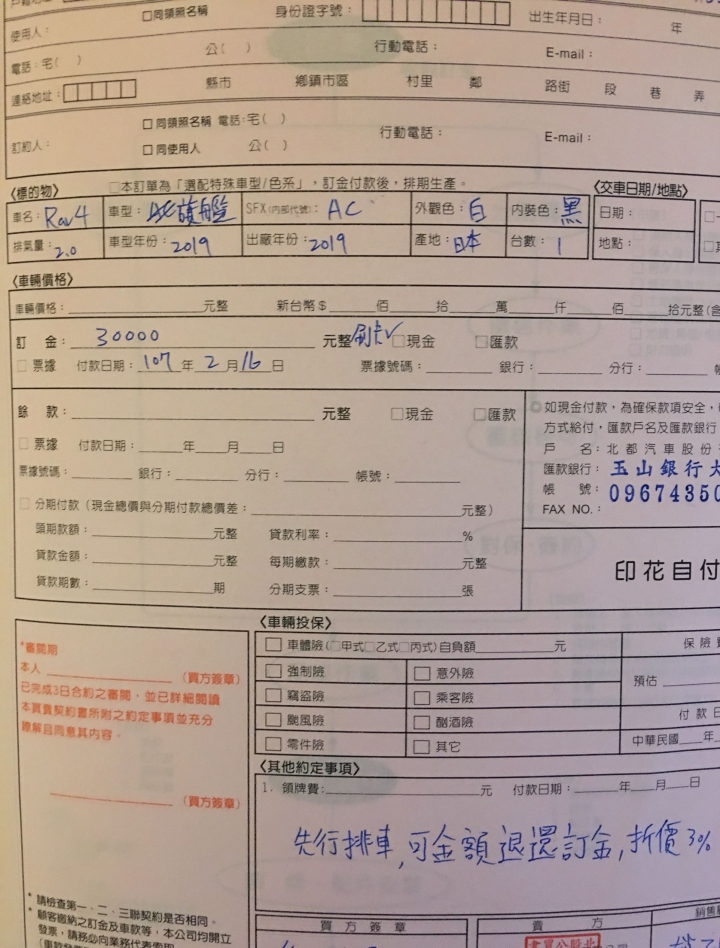 使用人： □同領照名稱 身份證字號： 出生年月日： 年
電話：宅( ) 公( ) 行動電話： E-mail：
連絡地址： 縣市 鄉鎮市區 村里 鄰 路街 段 巷 弄
訂約人： □同領照名稱 電話：宅( ) 行動電話： E-mail：
□同使用人 公( )
〈標的物〉 □本訂單為「選配特殊車型/色系」，訂金付款後，排期生產。 〈交車日期/地點〉
車名：Rav4 車型： 旗艦 SFX(內部代號)：AC 外觀色：白 內裝色：黑 日期：
排氣量：2.0 車型年份：2019 出廠年份：2019 產地：日本 台數：1 地點：
〈車輛價格〉
車輛價格： 元整 新台幣＄ 佰 拾 萬 仟 佰 拾元整
訂 金：30000 元整 刷卡✓ □現金 □匯款
□票據 付款日期：107年2月16日 票據號碼： 銀行： 分行：
餘 款： 元整 □現金 □匯款
□票據 付款日期： 年 月 日
票據號碼： 銀行： 分行： 帳號：
□分期付款（現金總價與分期付款總價差： 元整）
頭期款額： 元整 貸款利率： %
貸款金額： 元整 每期繳款： 元整
貸款期數： 期 分期支票： 張
如現金付款，為確保款項安全，
方式給付，匯款戶名及匯款銀行
戶 名：北都汽車股份
匯款銀行：玉山銀行
帳 號：09674350
FAX NO.：
印花自付
〈車輛投保〉
□車體險(□甲式□乙式□丙式)自負額 元 保險
□強制險 □意外險 預估
□竊盜險 □乘客險
□颱風險 □酗酒險 付款日
□零件險 □其它 中華民國 年
*審閱期
本人 (買方簽章)
已完成3日合約之審閱，並已詳細閱讀
本買賣契約書所附之約定事項並充分
瞭解且同意其內容。
(買方簽章)
〈其他約定事項〉
1. 領牌費： 元 付款日期： 年 月 日
先行排車,可全額退還訂金,折價3%
* 請檢查第一、二、三聯契約是否相同。
* 顧客繳納之訂金及車款等，本公司均開立
發票，請務必向業務代表索取
買方簽章 賣方